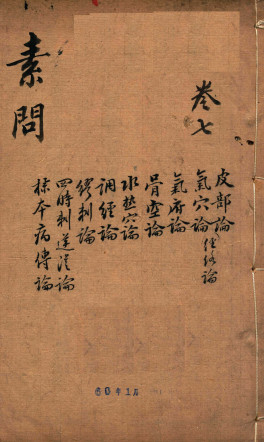 素問
卷七
皮部論 經絡論
氣穴論
氣府論
骨空論
水熱穴論
調經論
繆刺論
四時刺逆從論
標本病傳論
60年1月